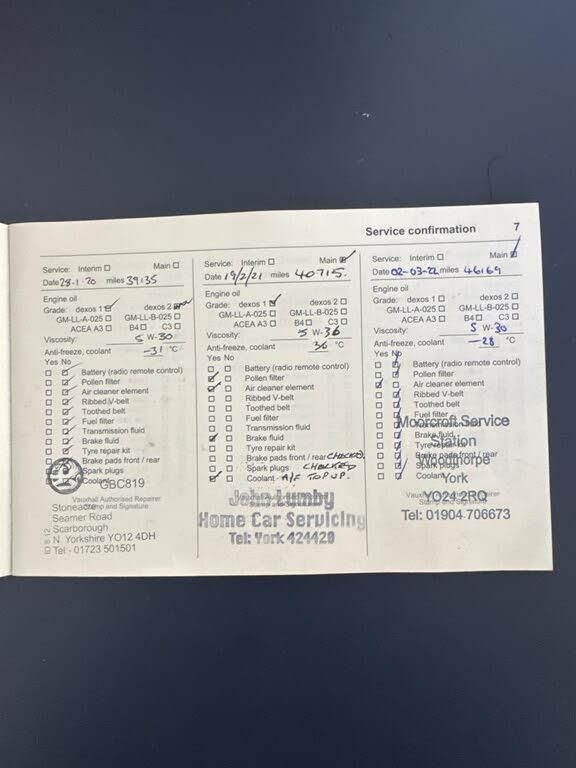 Service confirmation 7
Service: Interim ☐ Main ☐
Date 28.1.20 miles 39135
Engine oil
Grade: dexos 1 ☑ dexos 2
GM-LL-A-025 ☐ GM-LL-B-025 ☐
ACEA A3 ☐ B4 ☐ C3 ☐
Viscosity: 5 W-30
Anti-freeze, coolant -31 °C
Yes No
Battery (radio remote control)
Pollen filter
Air cleaner element
Ribbed V-belt
Toothed belt
Fuel filter
Transmission fluid
Brake fluid
Tyre repair kit
Brake pads front / rear
Spark plugs
Coolant
GBC819
Vauxhall Authorised Repairer
Stamp and Signature
Stoneacre
Seamer Road
Scarborough
N. Yorkshire YO12 4DH
Tel - 01723 501501
Service: Interim ☐ Main ☑
Date 19/2/21 miles 40715.
Engine oil
Grade: dexos 1 ☑ dexos 2 ☐
GM-LL-A-025 ☐ GM-LL-B-025 ☐
ACEA A3 ☐ B4 ☐ C3 ☐
Viscosity: 5 W-30
Anti-freeze, coolant °C
Yes No
Battery (radio remote control)
Pollen filter
Air cleaner element
Ribbed V-belt
Toothed belt
Fuel filter
Transmission fluid
Brake fluid
Tyre repair kit
Brake pads front / rear CHECKED.
Spark plugs CHECKED
Coolant A/F TOP UP.
John Lumby
Home Car Servicing
Tel: York 424420
Service: Interim ☐ Main ☑
Date 02-03-22 miles 46169
Engine oil
Grade: dexos 1 ☐ dexos 2 ☐
GM-LL-A-025 ☐ GM-LL-B-025 ☐
ACEA A3 ☐ B4 ☐ C3 ☐
Viscosity: 5 W-30
Anti-freeze, coolant -28 °C
Yes No
Battery (radio remote control)
Pollen filter
Air cleaner element
Ribbed V-belt
Toothed belt
Fuel filter
Transmission fluid
Brake fluid
Tyre repair kit
Brake pads front / rear
Spark plugs
Coolant
Moorcroft Service
Station
Woodthorpe
York
YO24 2RQ
Tel: 01904 706673